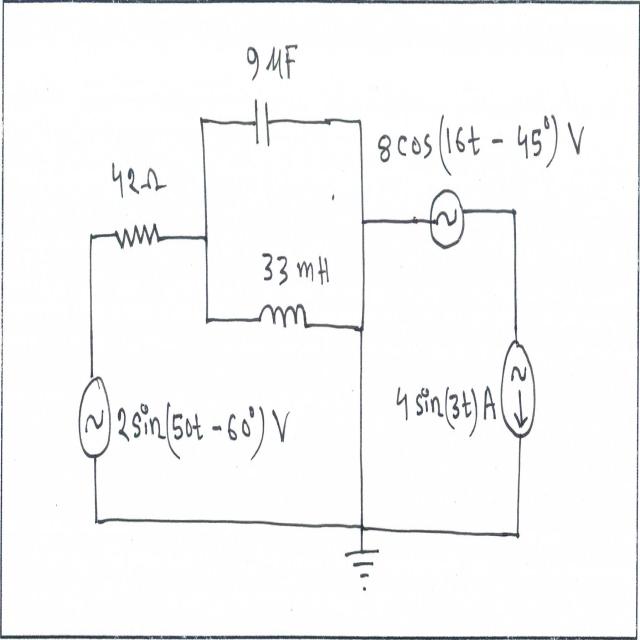 9 μF
8cos(16t - 45°) V
42Ω
33 mH
2sin(50t - 60°) V
4 sin(3t) A